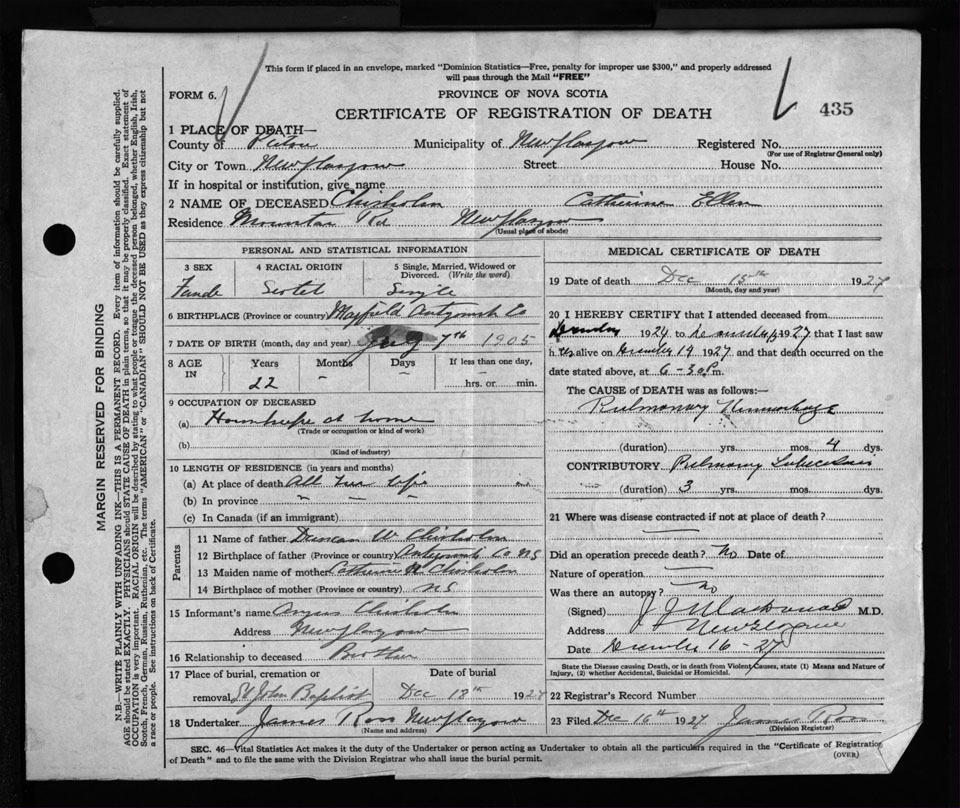 This form if placed in an envelope, marked "Dominion Statistics—Free, penalty for improper use $300," and properly addressed
will pass through the Mail "FREE"
FORM 6.
PROVINCE OF NOVA SCOTIA
CERTIFICATE OF REGISTRATION OF DEATH
435
1 PLACE OF DEATH—
County of Pictou Municipality of New Glasgow Registered No.
(For use of Registrar General only)
City or Town New Glasgow Street House No.
If in hospital or institution, give name
2 NAME OF DECEASED Chisholm Catherine Ellen
Residence Mountain Rd New Glasgow
(Usual place of abode)
PERSONAL AND STATISTICAL INFORMATION
3 SEX 4 RACIAL ORIGIN 5 Single, Married, Widowed or
Divorced. (Write the word)
Female Scotch Single
6 BIRTHPLACE (Province or country) Mayfield Antigonish Co
7 DATE OF BIRTH (month, day and year) 7th 1905
8 AGE IN Years Months Days If less than one day,
22 hrs. or min.
9 OCCUPATION OF DECEASED
(a) at home
(Trade or occupation or kind of work)
(b)
(Kind of industry)
10 LENGTH OF RESIDENCE (in years and months)
(a) At place of death All her life
(b) In province
(c) In Canada (if an immigrant)
Parents
11 Name of father Duncan W Chisholm
12 Birthplace of father (Province or country) Antigonish Co NS
13 Maiden name of mother Catherine Chisholm
14 Birthplace of mother (Province or country) NS
15 Informant's name Angus Chisholm
Address New Glasgow
16 Relationship to deceased Brother
17 Place of burial, cremation or Date of burial
removal St John Baptist Dec 18th 1927
18 Undertaker James Ross New Glasgow
(Name and address)
MEDICAL CERTIFICATE OF DEATH
19 Date of death Dec 15th 1927
(Month, day and year)
20 I HEREBY CERTIFY that I attended deceased from
1924 to 1927 that I last saw
her alive on December 14 1927 and that death occurred on
date stated above, at 6-30 m.
The CAUSE OF DEATH was as follows:
Pulmonary Hemorrhage
(duration) yrs. mos. 4 dys.
CONTRIBUTORY Pulmonary Tuberculosis
(duration) 3 yrs. mos. dys.
21 Where was disease contracted if not at place of death?
Did an operation precede death? No Date of
Nature of operation
Was there an autopsy? No
(Signed) M.D.
Address New Glasgow
Date December 16-27
State the Disease causing Death, or in death from Violent Causes, state (1) Means and Nature of
Injury, (2) whether Accidental, Suicidal or Homicidal.
22 Registrar's Record Number
23 Filed Dec 16th 1927 James Ross
(Division Registrar)
SEC. 46—Vital Statistics Act makes it the duty of the Undertaker or person acting as Undertaker to obtain all the particulars required in the "Certificate of Registration
of Death" and to file the same with the Division Registrar who shall issue the burial permit. (OVER)
MARGIN RESERVED FOR BINDING
N.B.—WRITE PLAINLY, WITH UNFADING INK—THIS IS A PERMANENT RECORD. Every item of information should be carefully supplied.
AGE should be stated EXACTLY. PHYSICIANS should STATE CAUSE OF DEATH in plain terms, so that it may be properly classified. Exact statement of
OCCUPATION is very important. RACIAL ORIGIN will be described by stating to what people or tongue the deceased person belonged, whether English, Irish,
Scotch, French, German, Russian, Ruthenian, etc. The terms "AMERICAN" or "CANADIAN" SHOULD NOT BE USED as they express citizenship but not
a race or people. See instructions on back of Certificate.